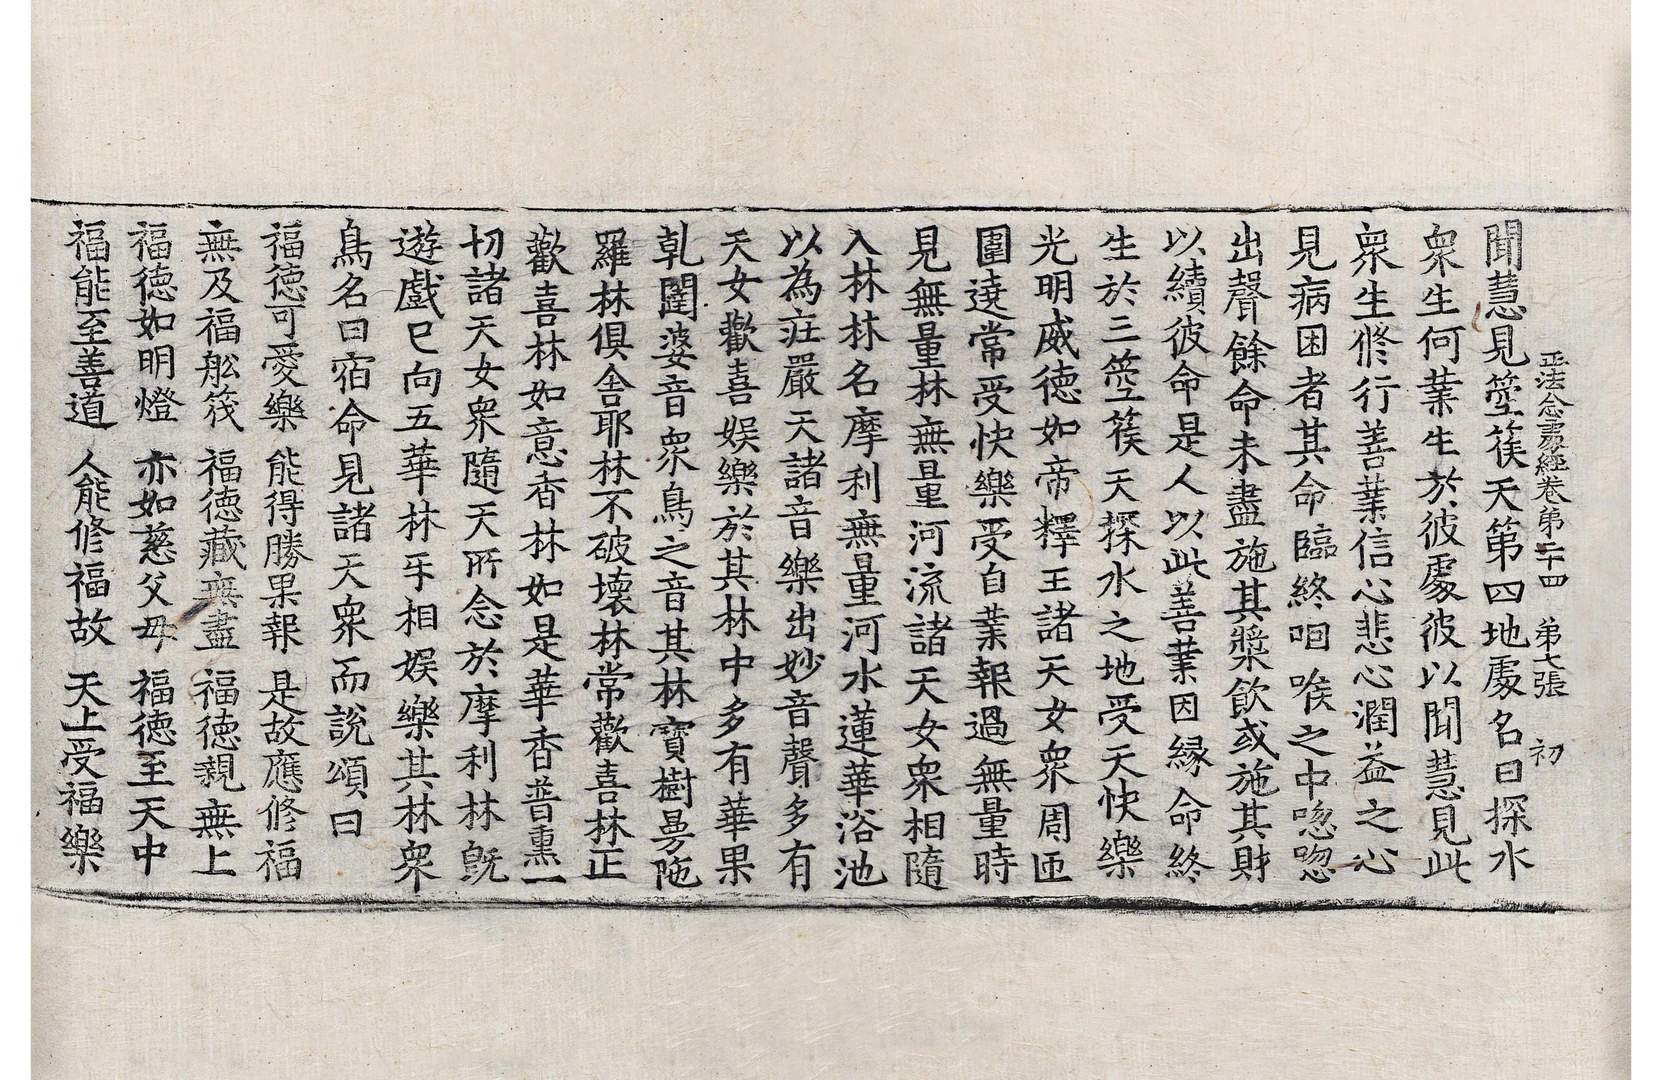 正法念處經卷第二十四 第七張 初
聞慧見箜篌天第四地處名曰探水
衆生何業生於彼處彼以聞慧見此
衆生修行善業信心悲心潤益之心
見病困者其命臨終咽喉之中惚惚
出聲餘命未盡施其漿飲或施其財
以續彼命是人以此善業因緣命終
生於三箜篌天探水之地受天快樂
光明威德如帝釋王諸天女衆周匝
圍遶常受快樂受自業報過無量時
見無量林無量河流諸天女衆相隨
入林林名摩利無量河水蓮華浴池
以為莊嚴天諸音樂出妙音聲多有
天女歡喜娛樂於其林中多有華果
乾闥婆音衆鳥之音其林寶樹曼陁
羅林俱舍耶林不破壞林常歡喜林正
歡喜林如意香林如是華香普熏一
切諸天女衆隨天所念於摩利林旣
遊戲已向五華林牙相娛樂其林衆
鳥名曰宿命見諸天衆而說頌曰
福德可愛樂 能得勝果報 是故應修福
無及福舩筏 福德藏無盡 福德親無上
福德如明燈 亦如慈父母 福德至天中
福能至善道 人能修福故 天上受福樂